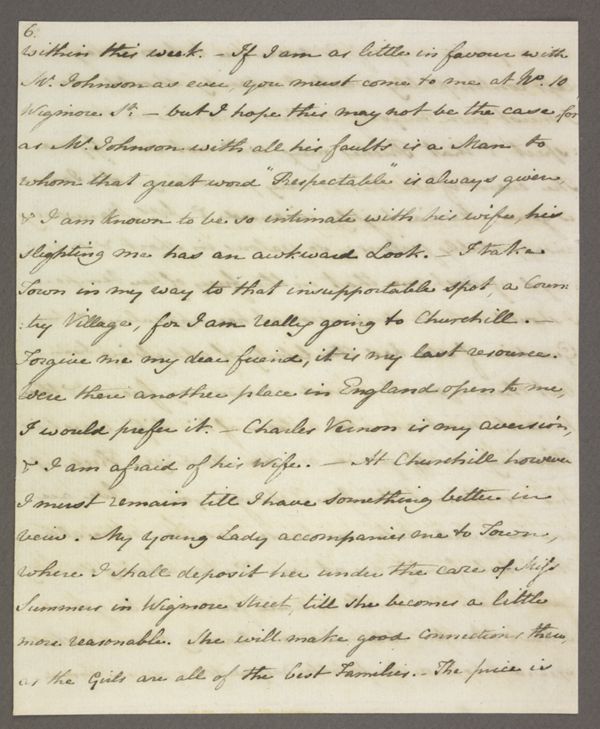 6.
within this week. - If I am as little in favour with
Mr. Johnson as ever, you must come to me at No. 10
Wigmore St. - but I hope this may not be the case, for
as Mr. Johnson with all his faults is a Man to
whom that great word "Respectable" is always given,
& I am known to be so intimate with his wife, his
slighting me has an awkward Look. - I take
Town in my way to that insupportable spot, a Coun:
:try Village, for I am really going to Churchill. -
Forgive me my dear friend, it is my last resource.
Were there another place in England open to me,
I would prefer it. - Charles Vernon is my aversion,
& I am afraid of his wife. - At Churchill however
I must remain till I have something better in
veiw. My young Lady accompanies me to Town,
where I shall deposit her under the care of Miss
Summers in Wigmore Street, till she becomes a little
more reasonable. She will make good connections there,
as the Girls are all of the best Families. - The price is